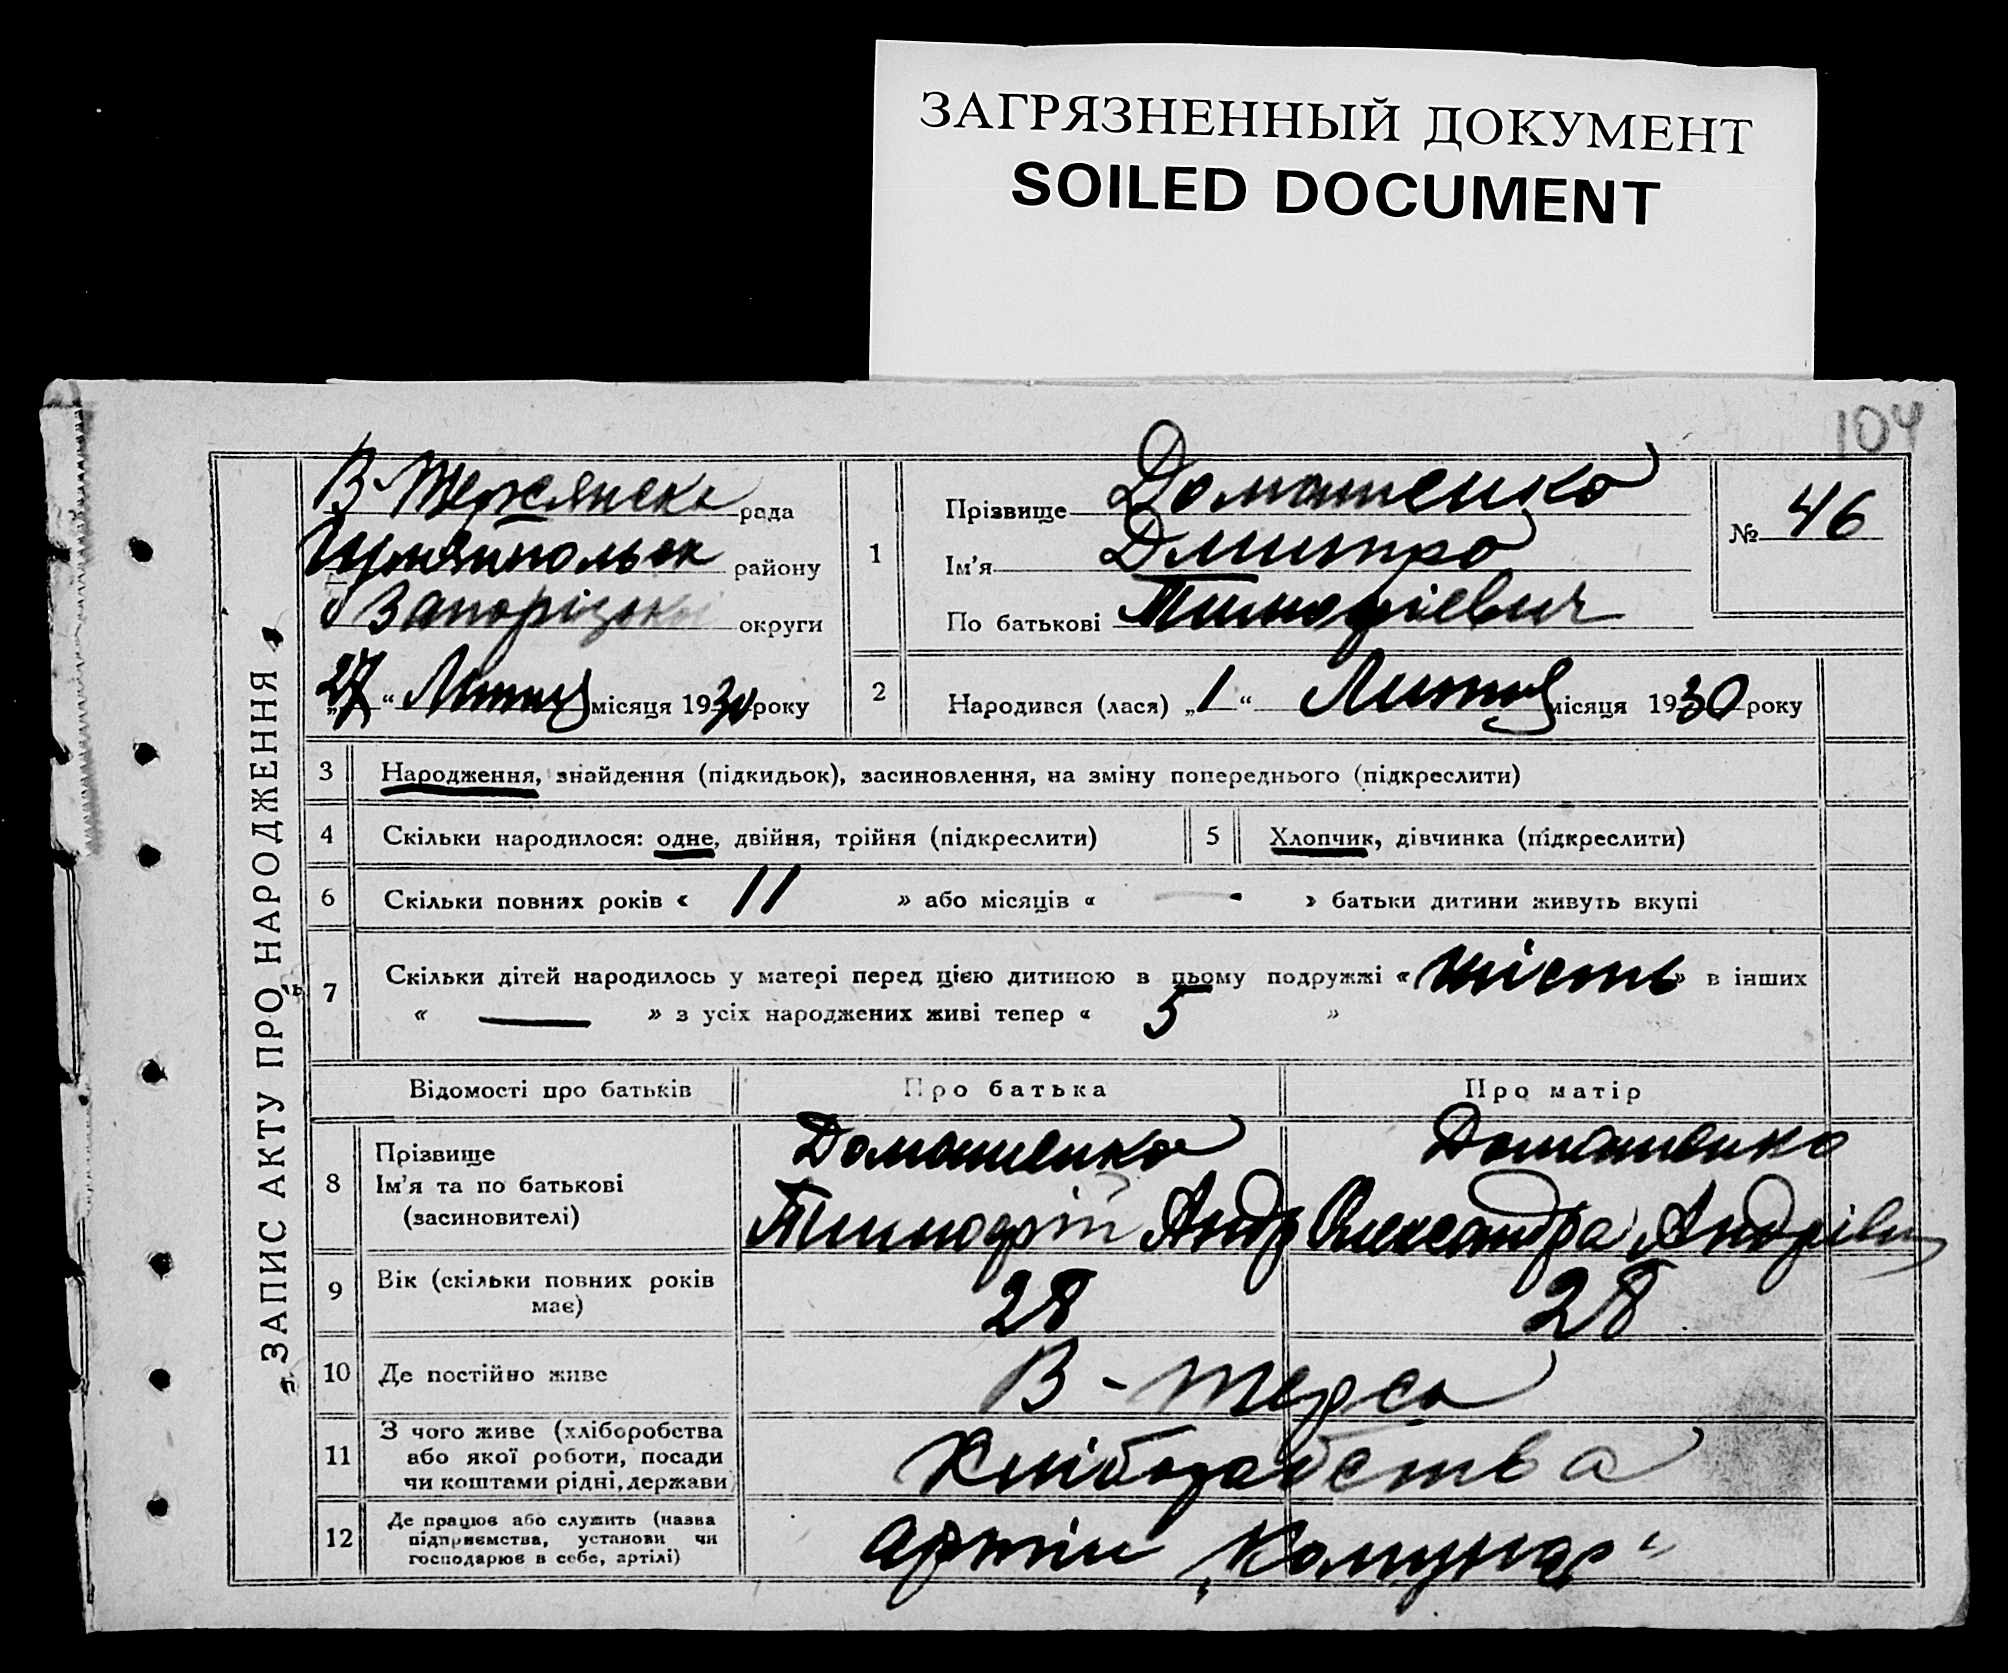 ЗАГРЯЗНЕННЫЙ ДОКУМЕНТ
SOILED DOCUMENT
104
ЗАПИС АКТУ ПРО НАРОДЖЕННЯ
В-Терсянска рада
Гуляйпольск району
Запорізької округи
„27“ Лютця місяця 1930 року
1
Прізвище Домашенко
Ім’я Дмитро
По батькові Тимофієвич
№ 46
2 Народився (лася) „1“ Лютця місяця 1930 року
3 Народження, знайдення (підкидьок), засиновлення, на зміну попереднього (підкреслити)
4 Скільки народилося: одне, двійня, трійня (підкреслити) 5 Хлопчик, дівчинка (підкреслити)
6 Скільки повних років « 11 » або місяців « — » батьки дитини живуть вкупі
7 Скільки дітей народилось у матері перед цією дитиною в цьому подружжі « шість » в інших
« — » з усіх народжених живі тепер « 5 »
Відомості про батьків Про батька Про матір
8 Прізвище Домашенко Домашенко
Ім’я та по батькові Тимофій Андр Олександра Андріївн
(засиновителі)
9 Вік (скільки повних років має) 28 28
10 Де постійно живе В-Терса
11 З чого живе (хліборобства
або якої роботи, посади
чи коштами рідні, держави) Хліборобства
12 Де працює або служить (назва
підприємства, установи чи
господарює в себе, артілі) Артіли „Комунар“